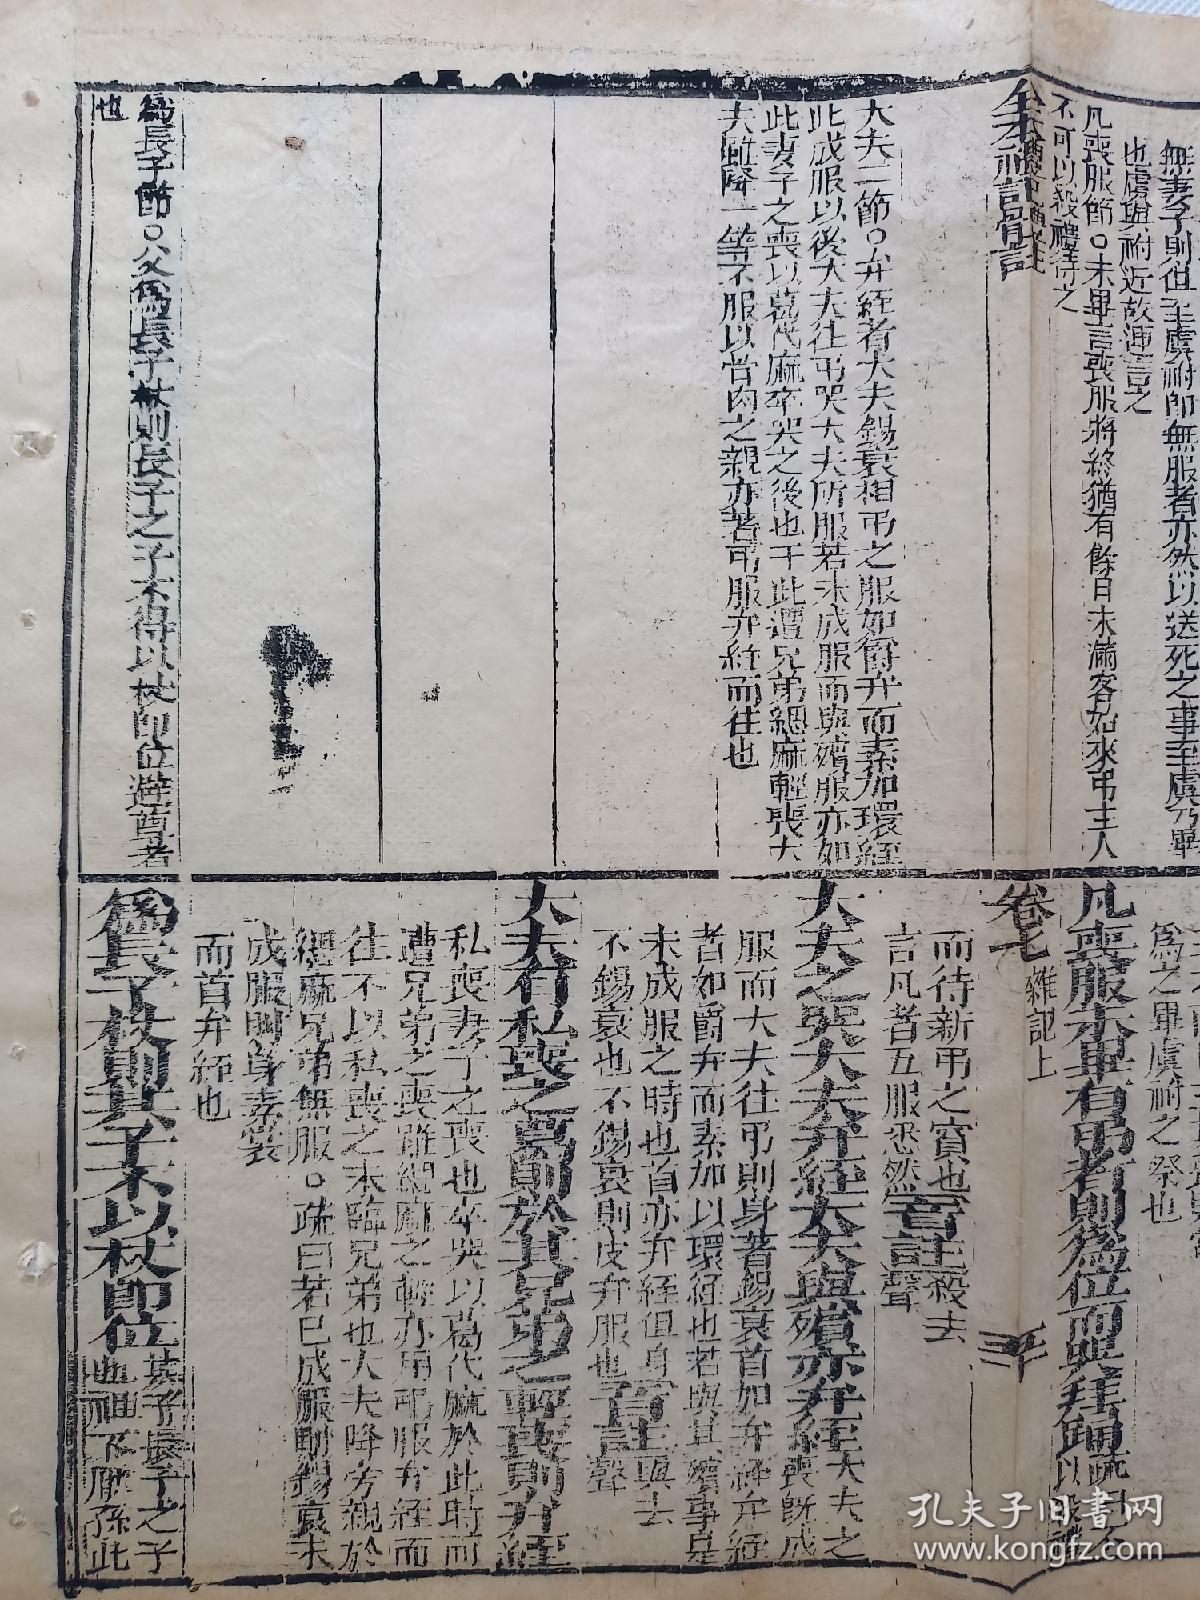 無妻子則但至虞祔即無服者亦然以送死之事至虞乃畢
也虞與祔近故連言之
凡喪服節○未畢言喪服將終猶有餘日未滿客始來弔主人
不可以殺禮待之
大夫二節○弁絰者大夫錫衰相弔之服如爵弁而素加環絰
此成服以後大夫往弔哭大夫所服若未成服而與殯服亦如
此妻子之喪以葛代麻卒哭之後也于此遭兄弟緦麻輕喪大
夫雖降一等不服以骨肉之親亦著弔服弁絰而往也
為長子節○父為長子杖則長子之子不得以杖即位避尊者
也
為之畢虞祔之祭也
凡喪服未畢有弔者則為位而哭拜踊
卷七 雜記上
而待新弔之賓也
言凡者五服悉然音註殺去
聲
大夫之哭大夫弁絰大夫與殯亦弁絰大夫之
喪既成
服而大夫往弔則身著錫衰首加弁絰弁絰
者如爵弁而素加以環絰也若與其殯事是
未成服之時也首亦弁絰但身
不錫衰也不錫衰則皮弁服也音註與去
聲
大夫有私喪之葛則於其兄弟之輕喪則弁絰
私喪妻子之喪也卒哭以葛代麻於此時而
遭兄弟之喪雖緦麻之輕亦用弔服弁絰而
往不以私喪之末臨兄弟也大夫降旁親於
緦麻兄弟無服○疏曰若已成服則錫衰未
成服則身素裳
而首弁絰也
為長子杖則其子不以杖即位
其子長子之子
此